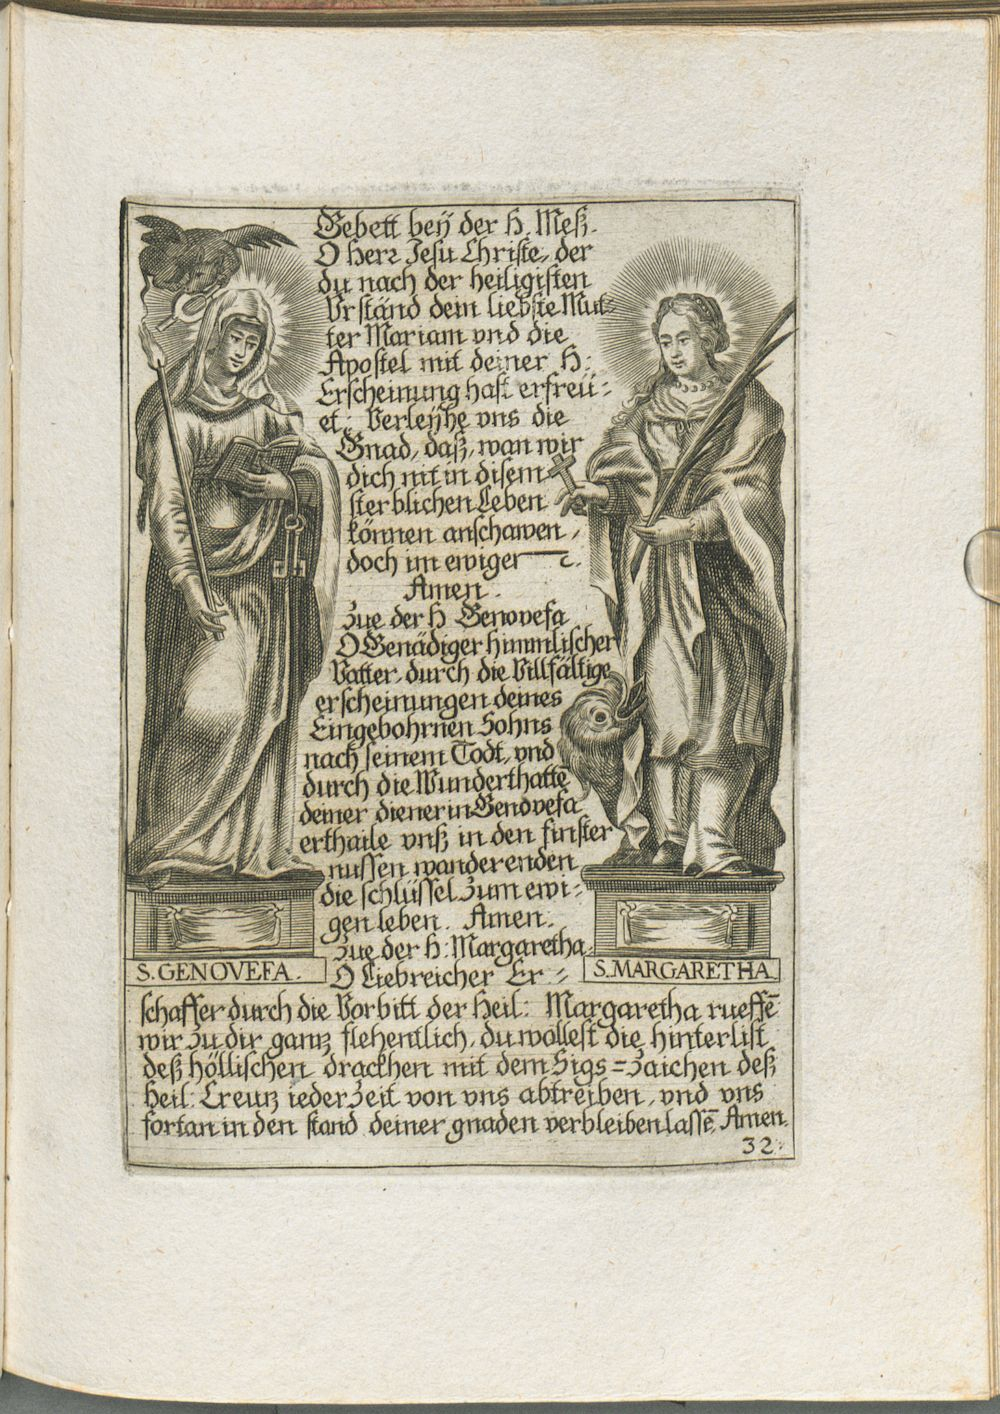 Gebett beÿ der H. Meß.
O Herr Jesu Christe, der
du nach der heiligisten
Vrständ dein liebste Mut-
ter Mariam vnd die
Apostel mit deiner H:
Erscheinung hast erfreü-
et: Verleÿhe vns die
Gnad, daß, wan wir
dich nit in disem
sterblichen Leben
können anschawen,
doch im ewiger
Amen.
Zue der H Genovefa
O Genädiger himmlischer
Vatter, durch die Villfältige
erscheinungen deines
Eingebohrnen Sohns
nach seinem Todt, vnd
durch die Wunderthatte
deiner dienerin Genovefa
erthaile vnß in den finster
nussen wanderenden
die schlüssel zum ewi-
gen leben. Amen.
Zue der H: Margaretha.
O Liebreicher Er-
S. GENOVEFA.
S. MARGARETHA
schaffer durch die Vorbitt der Heil: Margaretha rueffē
wir zu dir ganz flehentlich, du wollest die hinterlist
deß höllischen drackhen mit dem Sigs=Zaichen deß
Heil: Creutz ieder Zeit von vns abtreiben, vnd vns
fortan in den stand deiner gnaden verbleiben lassē, Amen.
32.